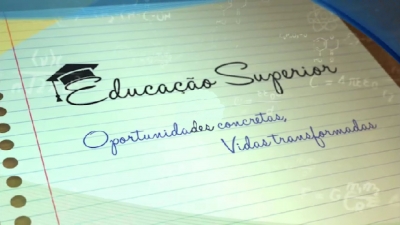 Educação Superior
Oportunidades concretas,
Vidas transformadas